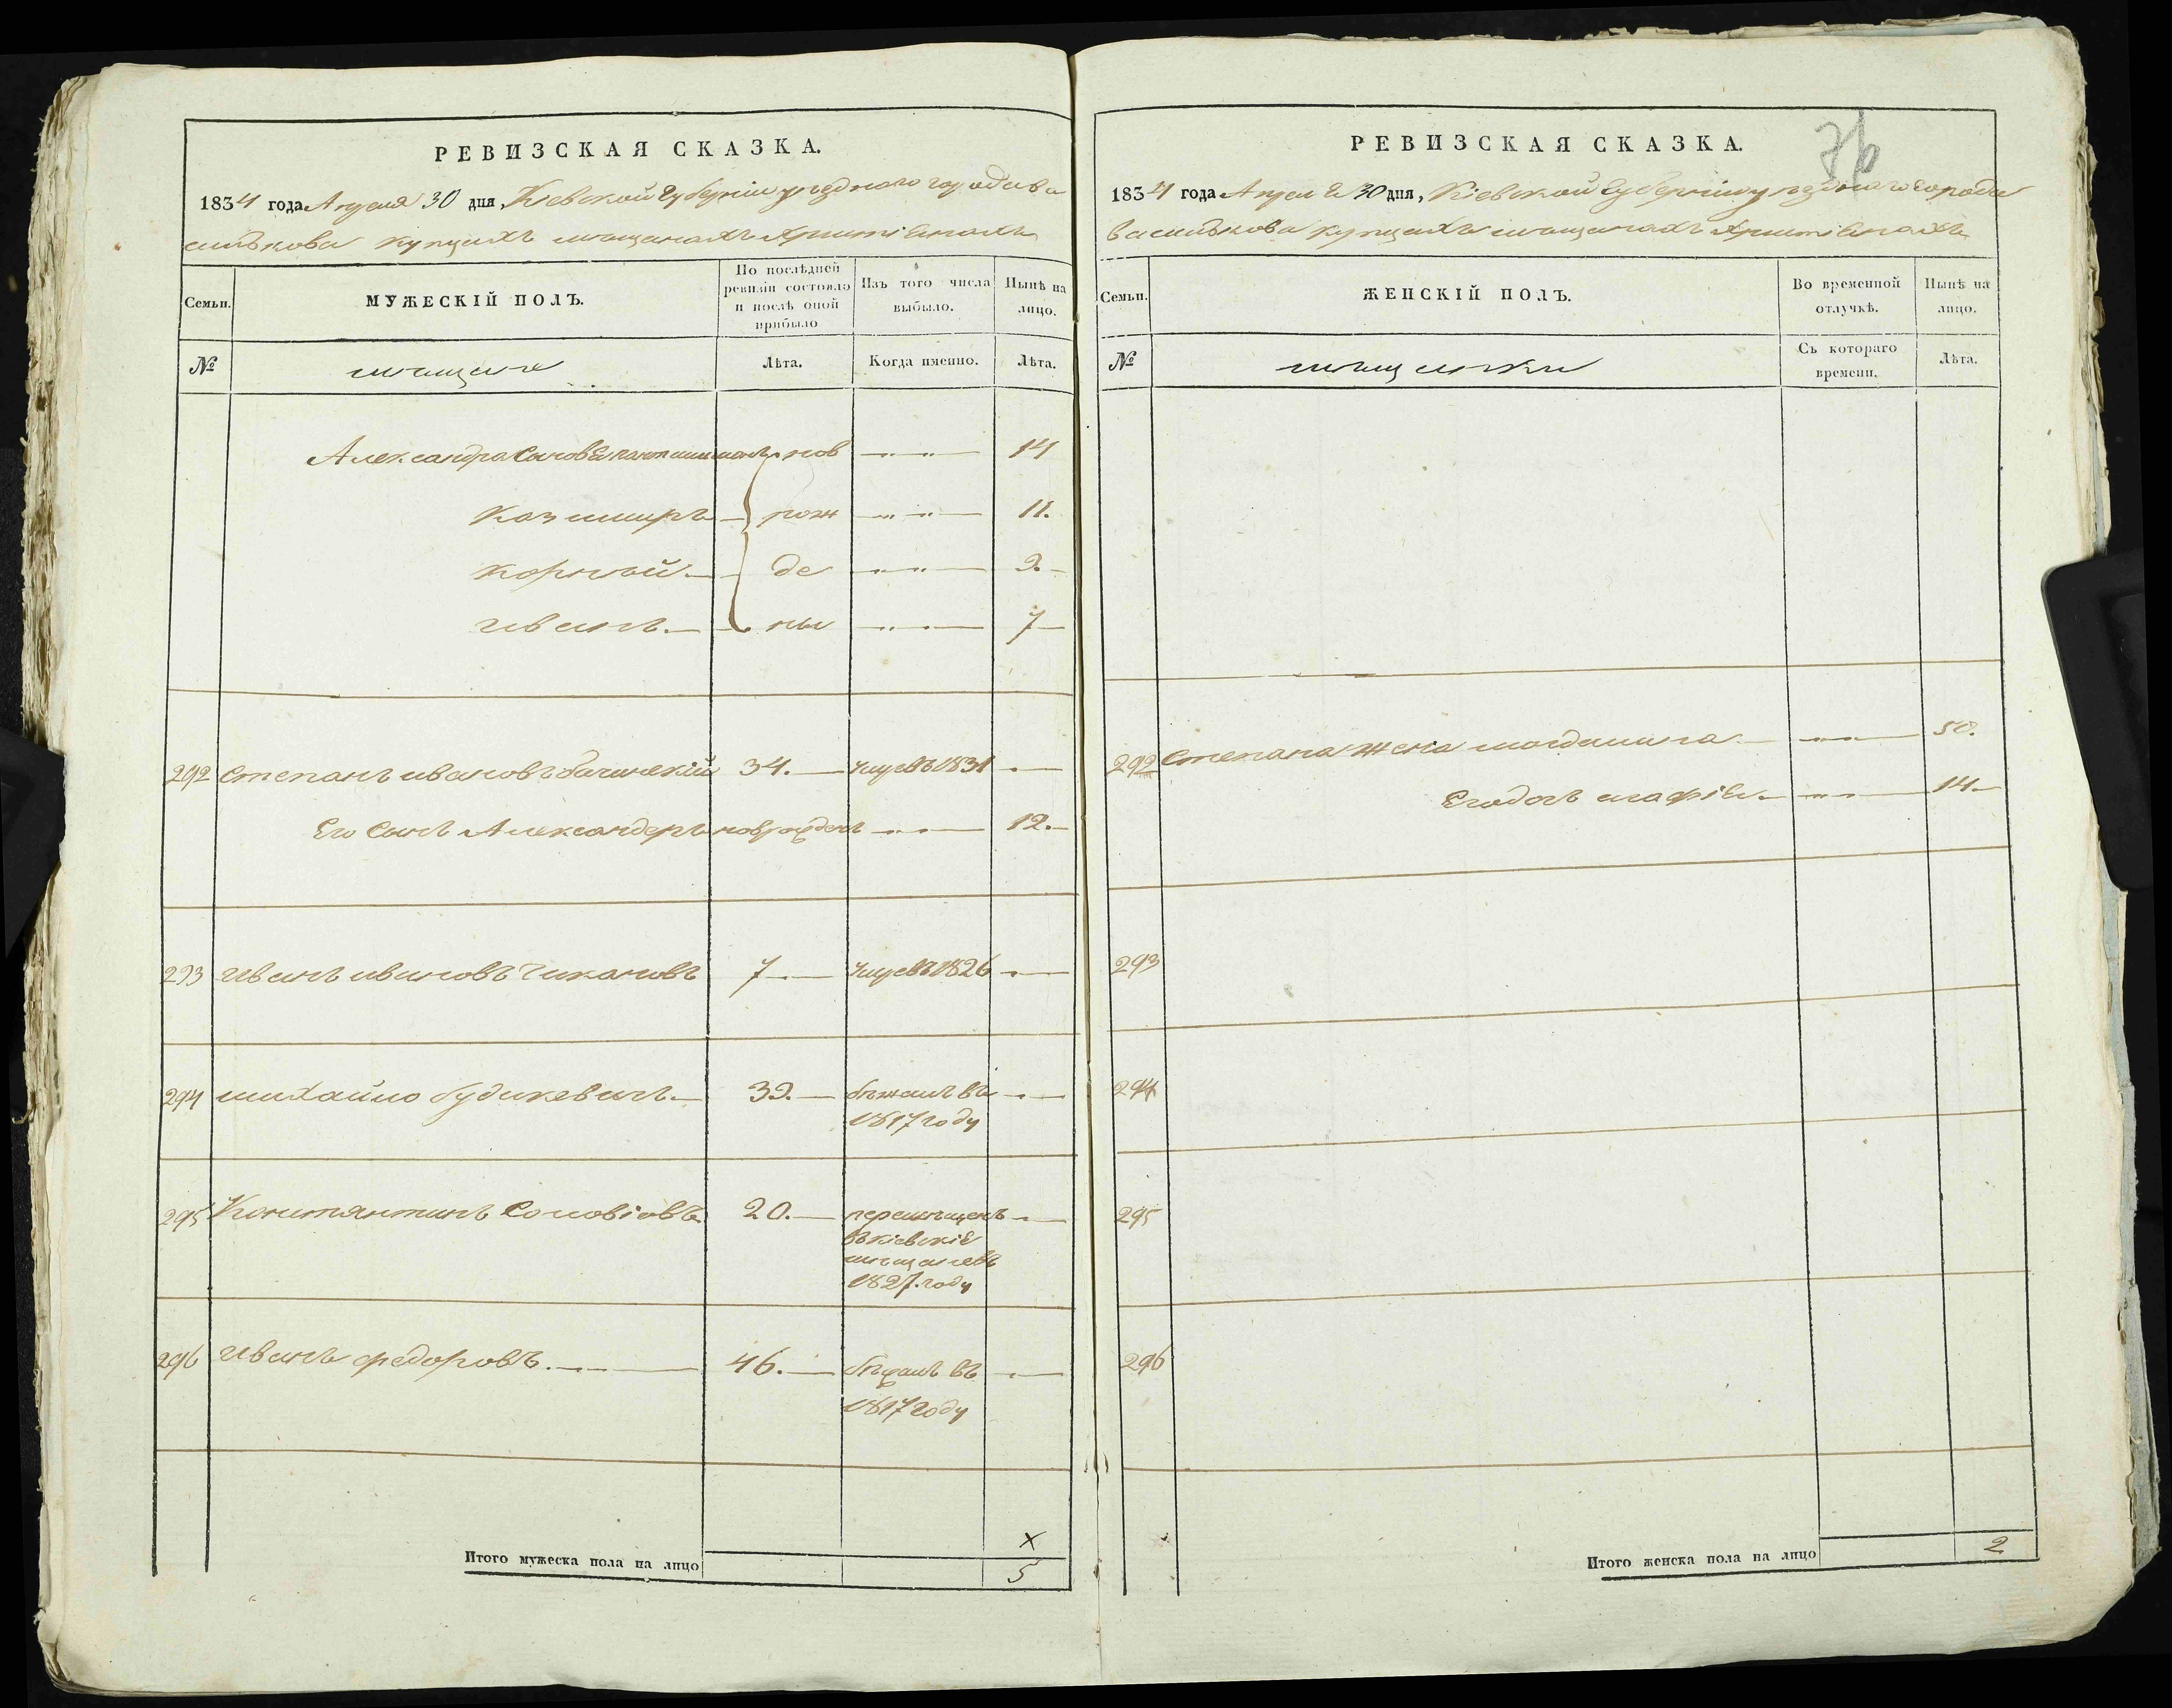 РЕВИЗСКАЯ СКАЗКА.
1834 года Апреля 30 дня, Киевской Губернiи уезднаго города Ва
силькова купцахъ мещанахъ Христiанахъ
Семьи.
МУЖЕСКIЙ ПОЛЪ.
По послѣдней ревизiи состояло и послѣ оной прибыло
Изъ того числа выбыло.
Нынѣ на лицо.
№
мещане
Лѣта.
Когда именно.
Лѣта.
Александра Сыновья нов 14
Казимиръ рож 11.
Корнѣй де 9.
Иванъ ны 7
292 Степанъ Ивановъ Бачинскiй 34. умре въ 1831
Его Сынъ Александеръ новорожденъ 12.
293 Иванъ Ивановъ Чикановъ 7 умре въ 1826
294 Михайло Будкевичъ 39. бѣжалъ въ
1817 году
295 Константинъ Соловiовъ 20. перемѣщенъ
въ кiевскiе
мѣщане въ
1827 году
296 Иванъ Федоровъ 46. бѣжалъ въ
1817 году
Итого мужеска пола на лицо
х
5
76
РЕВИЗСКАЯ СКАЗКА.
1834 года Апреля 30 дня, Кiевской Губернiи уезднаго города
Василькова купцахъ мещанахъ Христiанахъ
Семьи.
ЖЕНСКIЙ ПОЛЪ.
Во временной отлучкѣ.
Нынѣ на лицо.
№
мещанки
Съ котораго времени.
Лѣта.
292 Степана жена Магдалина 50.
Его дочь Агафiя 14.
293
294
295
296
Итого женска пола на лицо 2